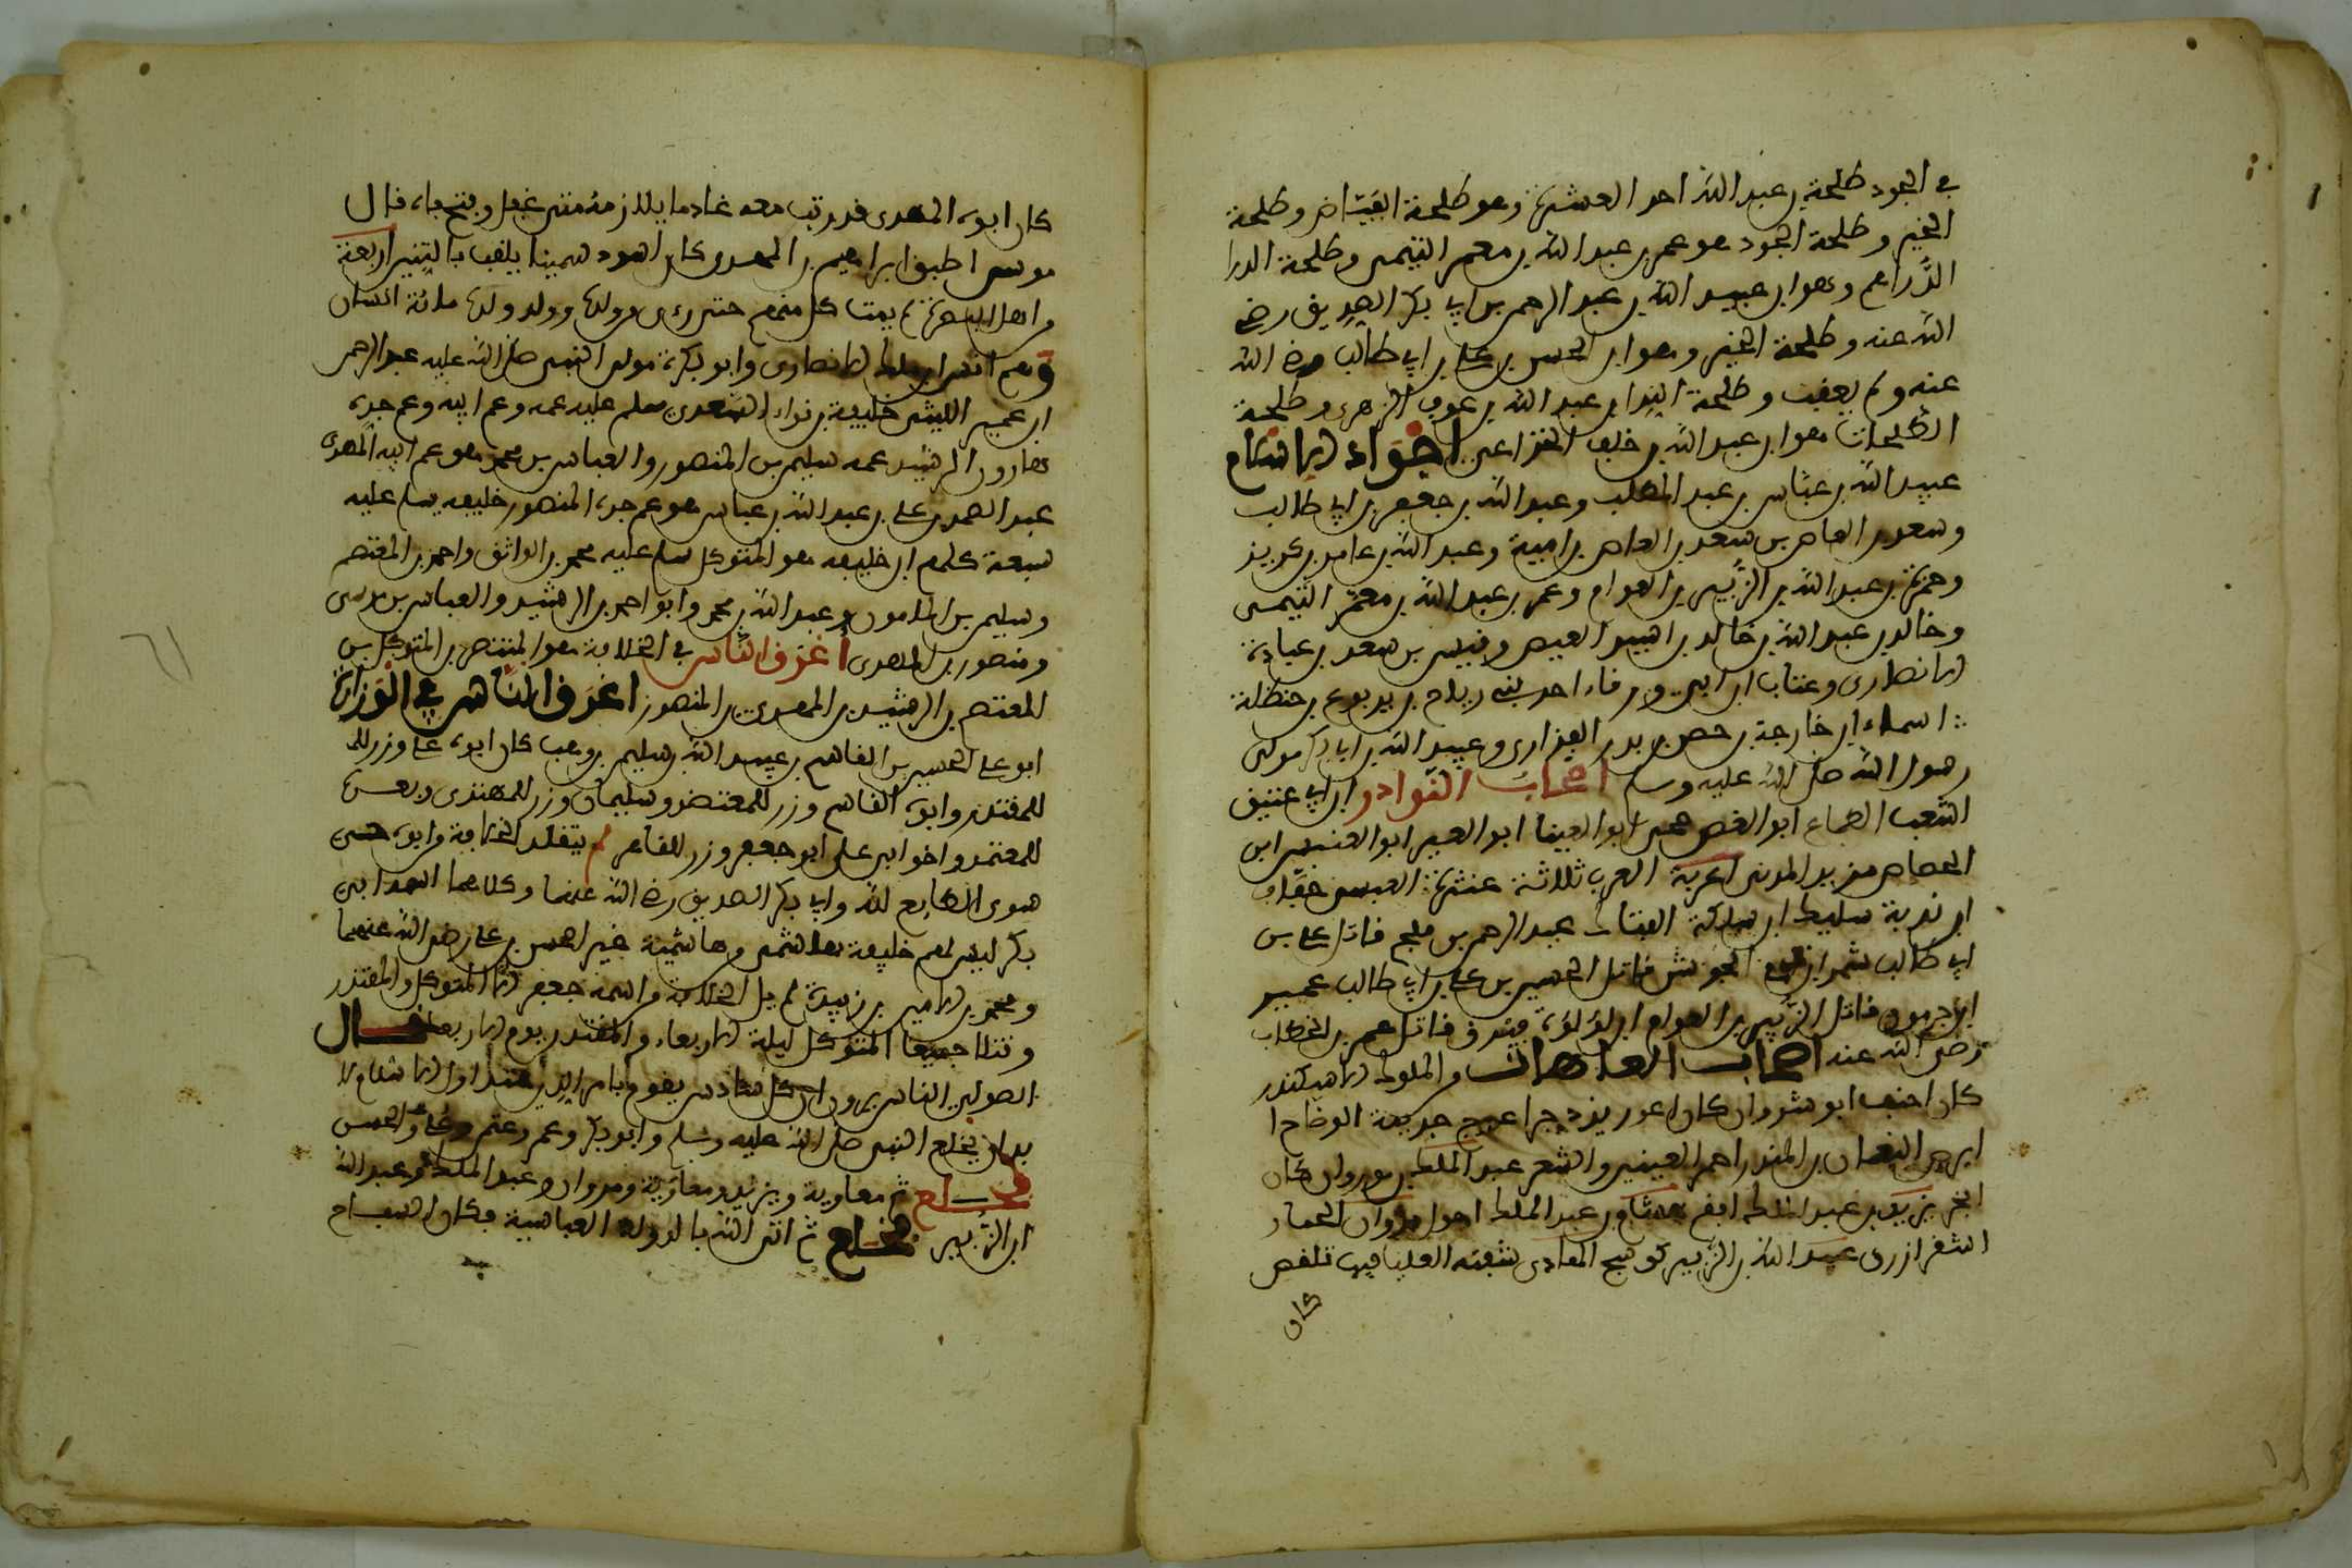 في الجود طلحة بن عبد الله احد العشرة وهو طلحة الفياض وطلحة
الخير وطلحة الجود هو عمر بن عبد الله بن معمر التيمي وطلحة الدرا
الدراهم وهو ابن عبد الله بن عبد الرحمن بن ابي بكر الصديق رضي
الله عنه وطلحة الخير وهو ابن الحسن بن علي بن ابي طالب رضي الله
عنه ولم يعقب وطلحة الندا بن عبد الله بن عوف الزهري وطلحة
الطلحات هو ابن عبد الله بن خلف الخزاعي اجواد الاسلام
عبيد الله بن عباس بن عبد المطلب وعبد الله بن جعفر بن ابي طالب
وسعد بن العاص بن سعد بن العاص بن امية وعبد الله بن عامر بن كريز
وحمزة بن عبد الله بن الزبير بن العوام وعمر بن عبد الله بن معمر التيمي
وخالد بن عبد الله بن خالد بن اسيد العيص وقيس بن سعد بن عبادة
الانصاري وعتاب ابن ورقاء احد بني رياح بن يربوع بن حنظلة
اسماء ابن خارجة بن حصن بن بدر الفزاري وعبيد الله بن ابي بكر مولى
رسول الله صلى الله عليه وسلم اصحاب النوادر ابن ابي عتيق
اشعب الطماع ابو الغصن ابو العينا ابو العبر ابو العنبس ابن
الجصاص مزيد المدني اغربة العرب ثلاثة عنترة العبسي خفاف
ابن ندبة سليط ابن سلكة الفتاك عبد الرحمن بن ملجم قاتل علي بن
ابي طالب شمر الجوشن قاتل الحسين بن علي بن ابي طالب عمير
ابن جرموز قاتل الزبير بن العوام ابو لؤلؤة قاتل عمر بن الخطاب
رضي الله عنه اصحاب العاهات والملوك الاسكندر
كان اخنف انو شروان كان اعور يزدجرد اعرج جذيمة الوضاح ا
ابرص النعمان بن المنذر احمر العينين والشعر عبد الملك بن مروان كان
ابخر يزيد بن عبد الملك افقم هشام بن عبد الملك احول مروان الحمار
اشقر ازرق عبد الله بن الزبير كوسج الهادي شفته العليا فيها تقلص
كان
كان ابوه المهدي قد رتب معه خادما يلازمه متى غفل وفتح فاه قال
موسى اطبق ابراهيم بن المهدي كان اسود سمينا يلقب بالتنين اربعة
من اهل البصرة لم يمت كل منهم حتى رءى من ولده وولد ولده مائة انسان
وهم انس ابن ملك الانصاري وابو بكرة مولى النبي صلى الله عليه عبد الرحمن
ابن عمير الليثي خليفة بن السعدي سلم عليه عمه وعم ابيه وعم جده
هارون الرشيد عمه سليم بن المنصور والعباس بن محمد هو عم ابيه المهدي
عبد الصمد بن علي بن عبد الله بن عباس هو عم جده المنصور خليفة يسلم عليه
سبعة كلهم ابن خليفة هو المتوكل سلم عليه محمد بن الواثق واحمد بن المعتصم
وسليم بن المامون وعبد الله بن محمد وابو احمد بن الرشيد والعباس بن موسى
ومنصور بن المهدي اعرق الناس في الخلافة هو المنتصر بن المتوكل بن
المعتصم بن الرشيد بن المهدي بن المنصور اعرق الناس في الوزارة
ابو علي الحسين بن القاسم بن عبيد الله بن سليم بن وهب كان ابوه علي وزر للم
للمقتدر وابوه القاسم وزر للمعتضد وسليمان وزر للمهتدي وبعده
للمعتمد واخو ابي علي ابو جعفر وزر للقاهر لم يتقلد الخلافة وابوه حي
سوى الطايع لله وابي بكر الصديق رضي الله عنهما وكلاهما اسمه ابي
بكر ليس لهم خليفة هاشمي من هاشمية غير الحسن بن علي رضي الله عنهما
ومحمد بن الامين بن زبيدة لم يل الخلافة من اسمه جعفر الا المتوكل والمقتدر
وقتلا جميعا المتوكل ليلة الاربعاء والمقتدر يوم الاربعاء قال
الصولي الناس يرون ان كل سادس يقوم بامر الدين منذ اول الاسلام لا
بد ان يخلع النبي صلى الله عليه وسلم وابو بكر وعمر وعثمن وعلي والحسن
فخلع ثم معاوية ويزيد ومعاوية ومروان وعبد الملك وعبد الله
ابن الزبير فخلع ثم اتى الله بالدولة العباسية فكان السفاح